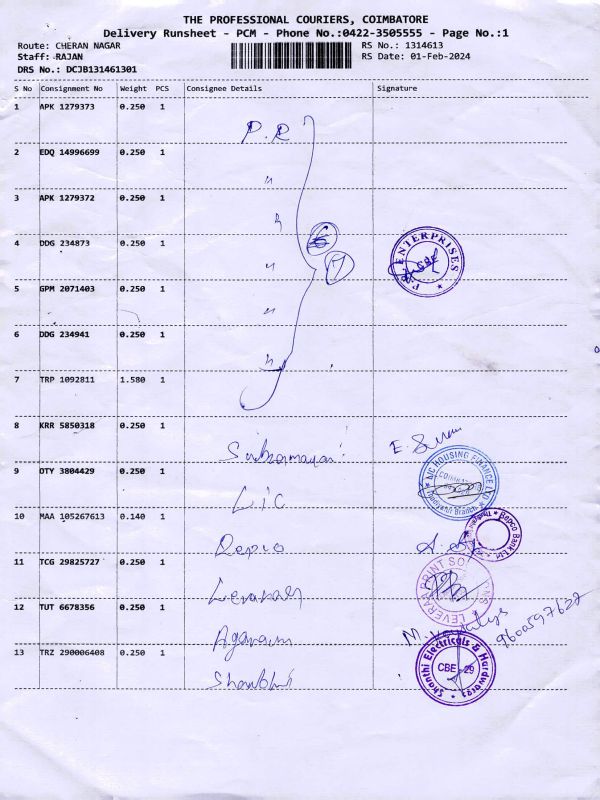 THE PROFESSIONAL COURIERS, COIMBATORE
Delivery Runsheet - PCM - Phone No.:0422-3505555 - Page No.:1
Route: CHERAN NAGAR RS No.: 1314613
Staff: RAJAN RS Date: 01-Feb-2024
DRS No.: DCJB131461301
S No Consignment No Weight PCS Consignee Details Signature
1 APK 1279373 0.250 1
P.R
2 EDQ 14996699 0.250 1
"
3 APK 1279372 0.250 1
"
4 DDG 234873 0.250 1
"
6
7
P.R. ENTERPRISES
CBE
5 GPM 2071403 0.250 1
"
6 DDG 234941 0.250 1
"
7 TRP 1092811 1.580 1
8 KRR 5850318 0.250 1
9 DTY 3804429 0.250 1
LIC
LIC HOUSING FINANCE LTD
10 MAA 105267613 0.140 1
Repco
Repco Bank Ltd
11 TCG 29825727 0.250 1
LEVERAA PRINT SOLUTIONS
12 TUT 6678356 0.250 1
13 TRZ 290006408 0.250 1
Shanthi Electricals & Hardwares
CBE - 29